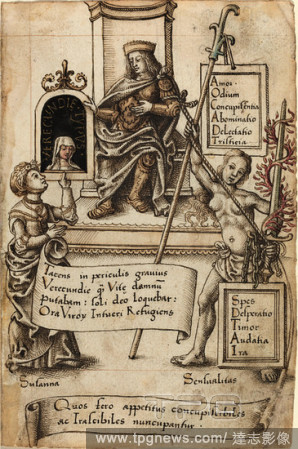 Amor
Odium
Concupiscentia
Abominatio
Delectatio
Tristicia
VERECUNDIE
Iacens in periculis gravius
Verecundie qȝ Vite damnū
Putabam: soli deo loquebar:
Ora Viroꝝ Intueri Refugiens
Spes
Desperatio
Timor
Audatia
Ira
Susanna
Sensualitas
Quos fero appetitus concupisibiles
ac Irascibiles nuncupantur.
www.tpgnews.com / 達志影像